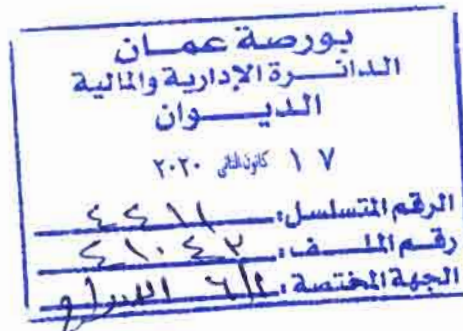 بورصة عمان
الدائرة الإدارية والمالية
الديوان
١٧ كانون الثاني ٢٠٢٠
الرقم المتسلسل: ٤٤١١
رقم الملف: ٤١٠٤٢
الجهة المختصة: